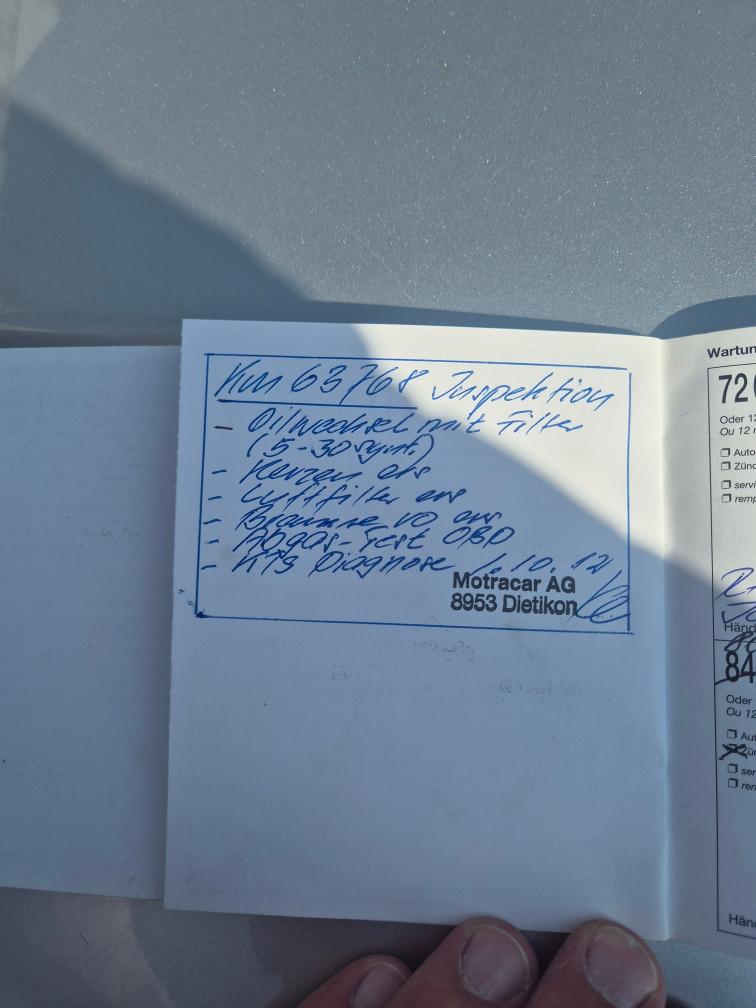 Km 63768 Inspektion
- Oilwechsel mit Filter
(5-30 synt.)
- Kerzen ers
- Luftfilter ers
- Bremse vo ers
- Abgas-Test OBD
- KTS Diagnose 1.10.12
Motracar AG
8953 Dietikon
Wartun
72
Oder 12
Ou 12 m
Auto
Zünd
servi
remp
Händ
84
Oder
Ou 12
Aut
Zün
ser
rem
Händ